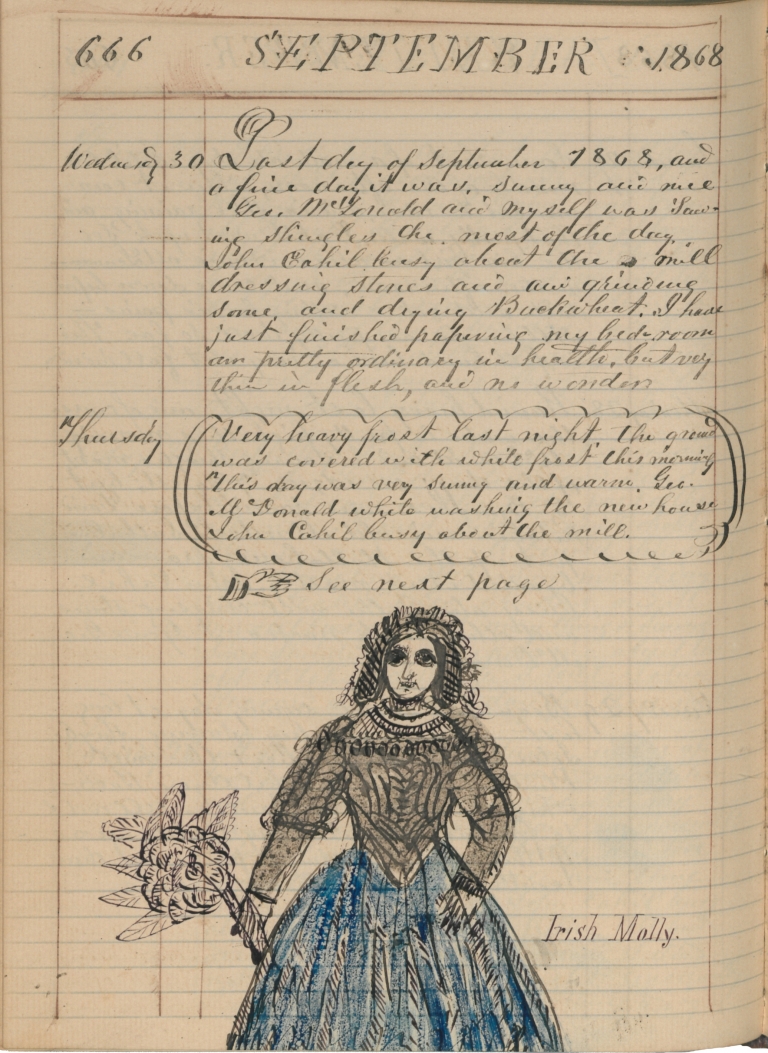 666 SEPTEMBER 1868
Wednesday 30 Last day of September 1868, and
a fine day it was. Sunny and nice
Geo. McDonald and myself was Saw-
ing shingles the most of the day,
John Cahil busy about the mill
dressing stones and air grinding
some, and drying Buckwheat. I have
just finished papering my bed-room
am pretty ordinary in health, but very
thin in flesh, and no wonder
Thursday Very heavy frost last night, the ground
was covered with white frost this morning
This day was very sunny and warm. Geo.
McDonald white washing the new house
John Cahil busy about the mill.
See next page
Irish Molly.